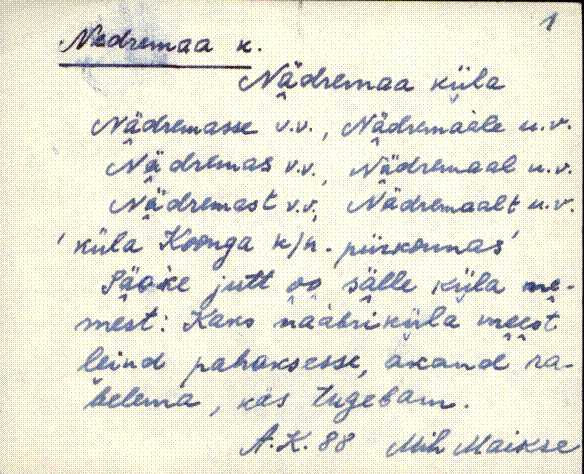 1
Nedremaa k.
Nädremaa küla
Nädremasse v.v., Nädremaale u.v.
Nädremas v.v., Nädremaal u.v.
Nädremast v.v., Nädremaalt u.v.
'küla Koonga k/n. piirkonnas'
jutt oo sälle küla me-
mest: Kaks nääbriküla meest
leind pahaksesse, akand ra-
belema, kes tugebam.
A.K. 88 Mih Maikse